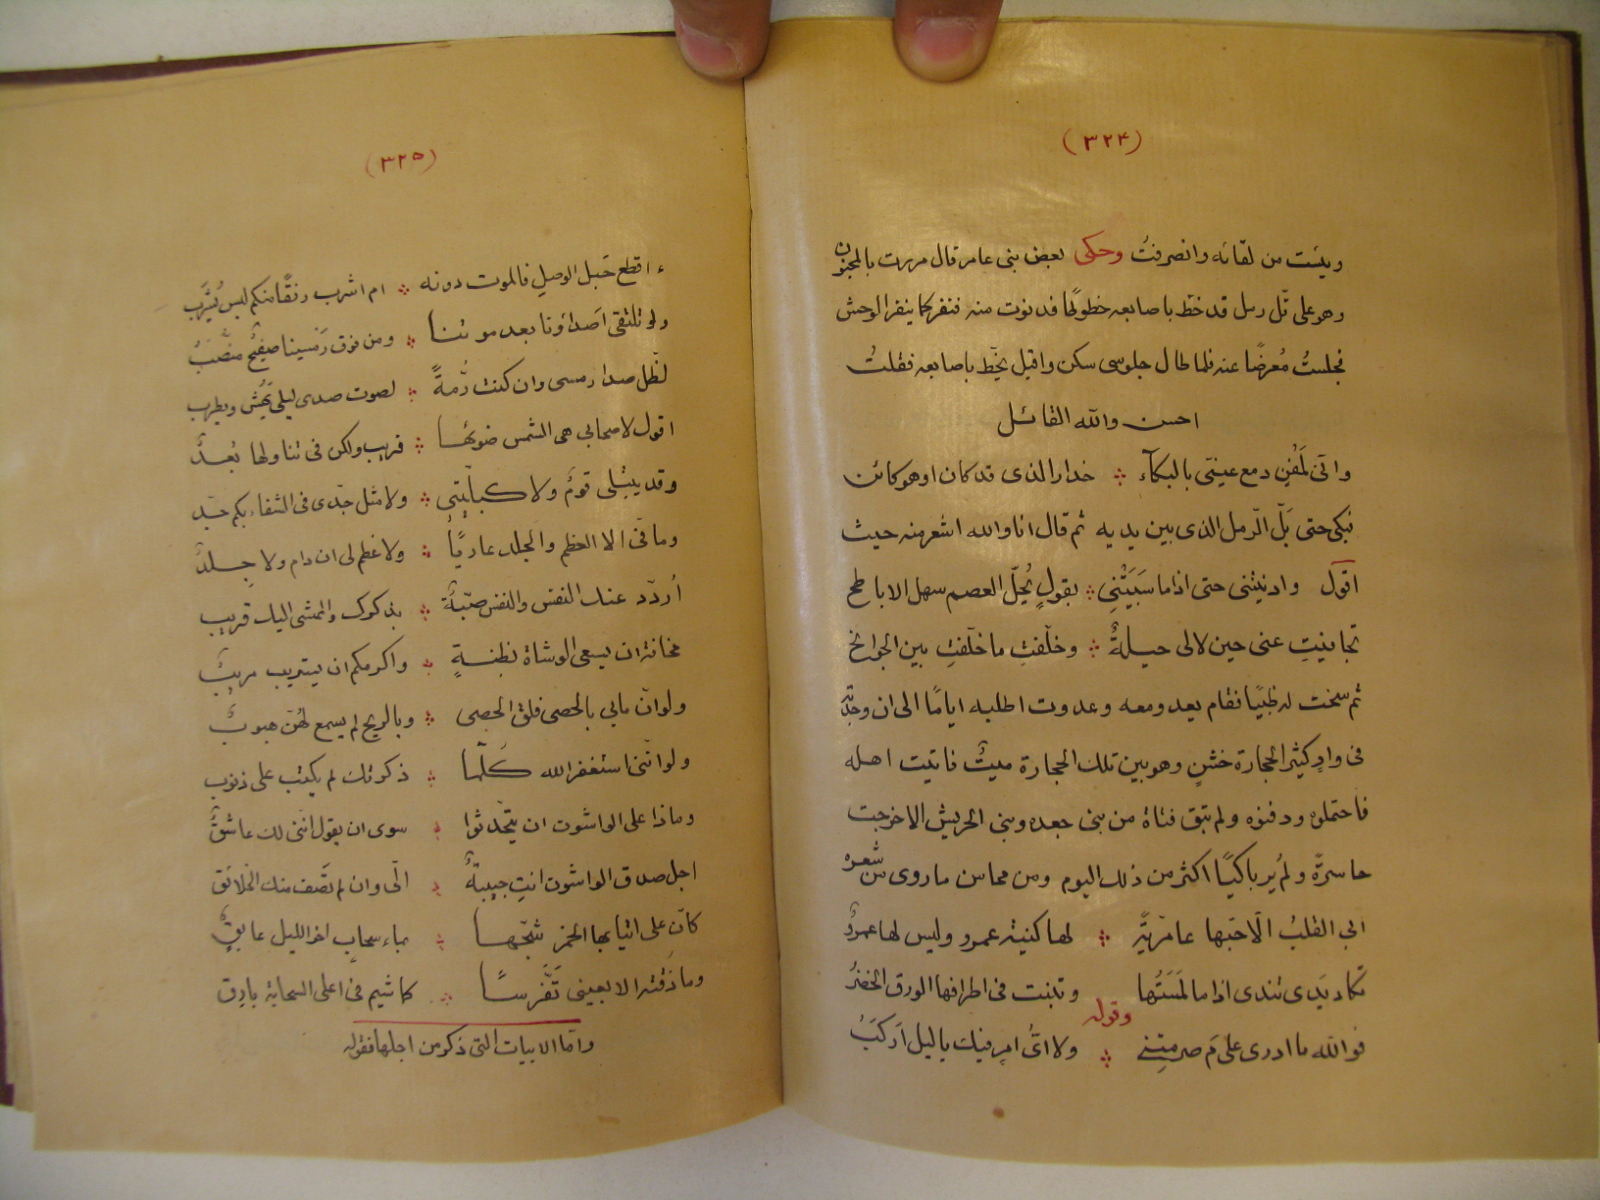 (٣٢٤)
ويئست من لقائه وانصرفتُ وحكى بعض بنى عامر قال مررت بالمجنون
وهو على تلّ رمل قد خطّ باصابعه خطوطًا فدنوت منه فنفر كما ينفر الوحش
فجلستُ مُعرضًا عنه فلما طال جلوسى سكن واقبل يخّط باصابعه فقلتُ
احسن والله القائل
وانّى لمُفنٍ دمع عينىّ بالبكآء ؞ حذار الذى قد كان او هو كائن
فبكى حتى بلّ الرّمل الذى بين يديه ثم قال انا والله اشعر منه حيث
اقول وادنيتنى حتى اذا ما سَبَيْتْنِى ؞ بقولٍ يُحِلّ العصم سهل الاباطح
تجافيتِ عنى حين لا لى حيلةٌ ؞ وخلّفتِ ما خلّفتِ بين الجوانح
ثم سنحت له ظبيًا فقام يعدو معه وعدوت اطلبه ايامًا الى ان وجدته
فى وادٍ كثير الحجارة خشنٍ وهو بين تلك الحجارة ميتٌ فاتيت اهله
فاحتملوه ودفنوه ولم تبق فتاة من بنى جعده وبنى الحريش الا خرجت
حاسرةً ولم يُر باكيًا اكثر من ذلك اليوم ومن محاسن ما روى من شعره
ابى القلبُ الّا حبّها عامريّةً ؞ لها كنية عمرو وليس لها عمروٌ
تكاد يَدى تندى اذا ما لمَسْتُها وتنبت فى اطرافها الورق الخضرُ
وقوله
فوالله ما ادرى على مَ صرمتِنى ؞ ولا اىُّ امرٍ فيك يا ليل اَركَبُ
(٣٢٥)
ءاقطع حَبل الوصلِ فالموت دونه ؞ ام اشرب رنقًا منكم ليس يُشرَبُ
ولو تلتقى اَصداؤنا بعد موتنا ؞ ومن فوق رَمْسينا صفيحٌ منصّبُ
لظّل صدا رمسى وان كنت رُمةً ؞ لصوت صدى ليلى يَهُشّ ويطرب
اقول لاصحابى هى الشمس ضوئها ؞ قريب ولكن فى تناولها بُعدٌ
وقد يبتلى قومٌ ولا كبليّتى ؞ ولا مثل جَدّى فى الشقاء بكم جَدّ
وما فّى الا العظم والجلد عاريًا ؞ ولا عظم لى ان دام ولا جلدٌ
اُردّد عنك النفس والنفس صبّةٌ ؞ بذكرك والممشى اليك قريب
مخافة ان يسعى الوشاة بظنةٍ ؞ واكرمكم ان يستريب مريبٌ
ولو انّ ما بى بالحصى فلق الحصى ؞ وبالريح لم يسمع لهُنّ هبوبٌ
ولو انّنى استغفر الله كلّما ؞ ذكرتك لم يكتب علىّ ذنوب
وماذا على الواشون ان يتحّدثوا ؞ سوى ان يقول انّنى لك عاشقٌ
اجل صدق الواشون انتِ حبيبةٌ ؞ الىّ وان لم تصَف منك الخلائق
كانّ على انيابها الخمر شجّها ؞ بماء سحاب اخر الليل عابقٌ
وما ذقته الا بعينى تَفَرُّسًا ؞ كما شيم فى اعلى السحابة بارق
وامّا الابيات التى ذكر من اجلها فقوله